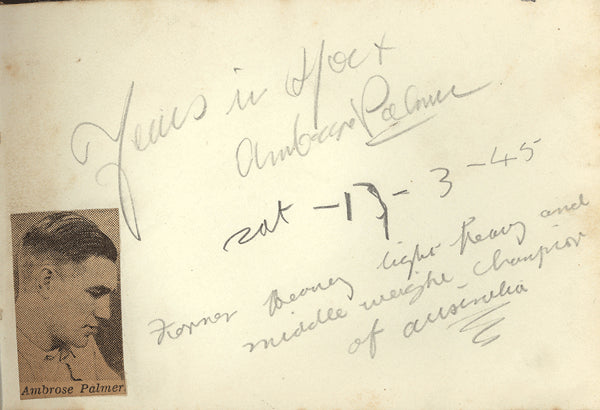 Yours in Spot
Ambrose Palmer
Sat - 17 - 3 - 45
Former Heavey light Heavy and
middle weight Champion
of Australia
Ambrose Palmer